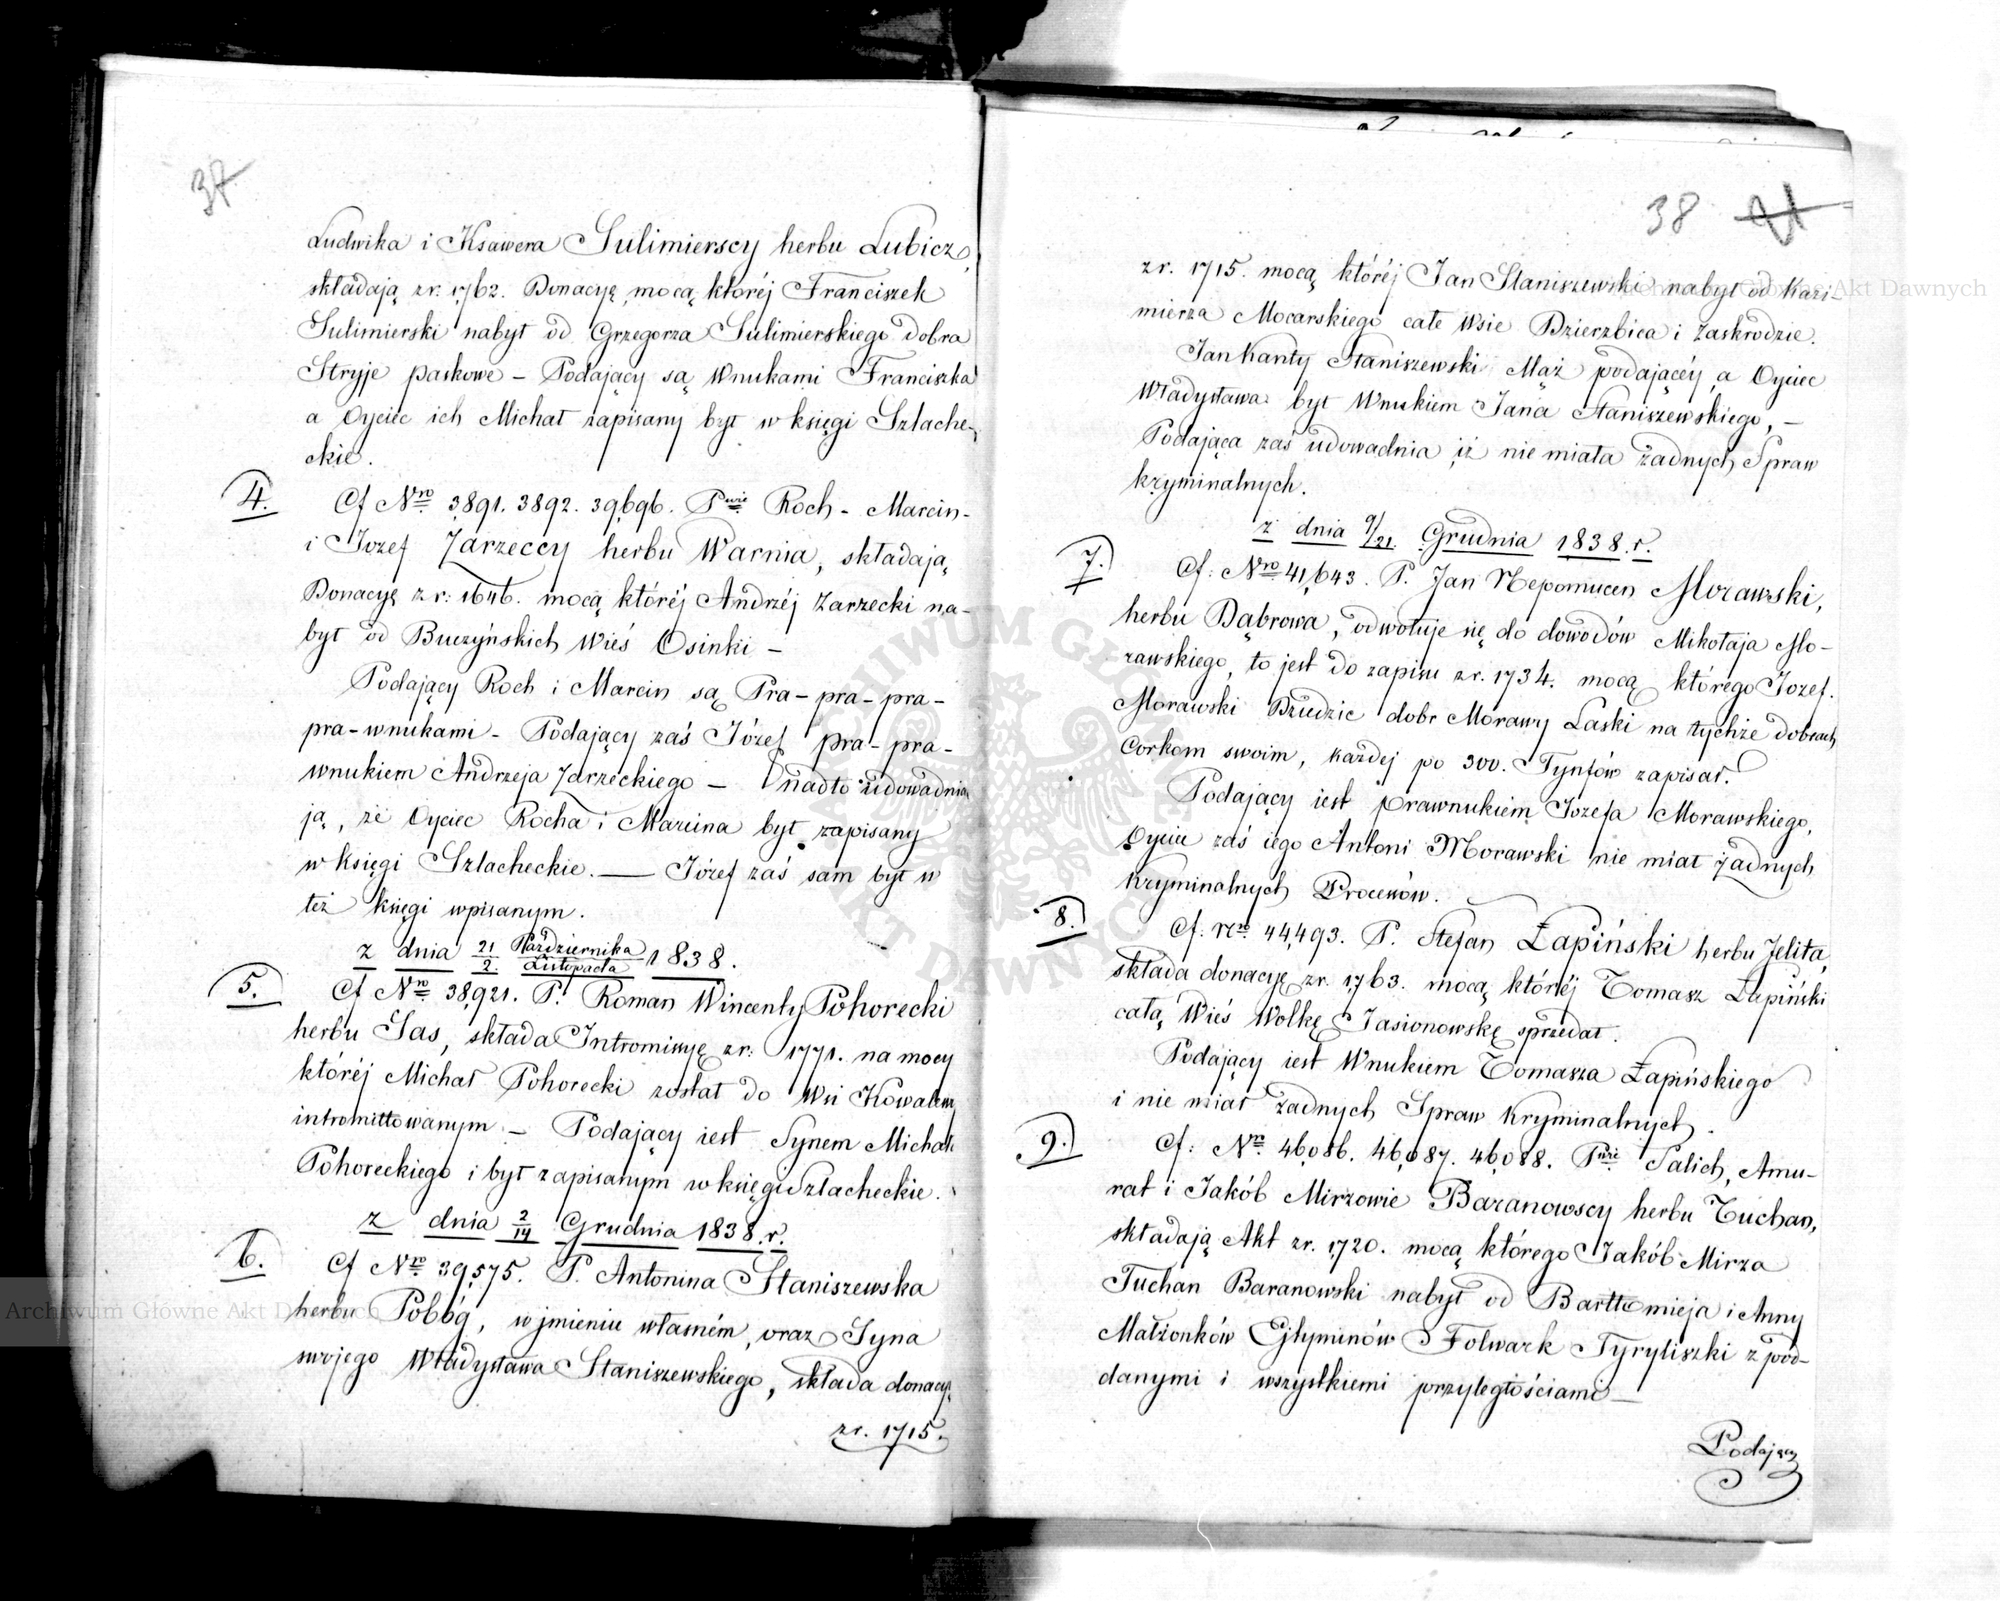 37
Ludwika i Ksawera Sulimierscy herbu Lubicz,
składają z r: 1762. Donacyę, mocą któréj Franciszek
Sulimierski nabył od Grzegorza Sulimierskiego dobra
Stryje paskowe – Podający są Wnukami Franciszka
a Oyciec ich Michał zapisany był w księgi Szlache-
ckie.
4. Cf Nro 3891. 3892. 39,696. Pwie Roch - Marcin -
i Jozef Zarzeccy herbu Warnia, składają
Donacyę z r: 1646. mocą któréj Andrzéj Zarzecki na-
był od Buczyńskich Wieś Osinki –
Podający Roch i Marcin są Pra - pra - pra -
pra - wnukami - Podający zaś Józef pra - pra -
wnukiem Andrzeja Zarzeckiego – nadto udowadnia
ją, że Oyciec Rocha i Marcina był zapisany
w księgi Szlacheckie. — Józef zaś sam był w
też księgi wpisanym.
z dnia 21/2. Października/Listopada 1838.
5. Cf Nro 38,921. P. Roman Wincenty Pohorecki
herbu Sas, składa Intromissyę z r: 1771. na mocy
któréj Michał Pohorecki został do Wsi Kowalewy
intromittowanym – Podający iest Synem Michała
Pohoreckiego i był zapisanym w księgi Szlacheckie.
z dnia 2/14 Grudnia 1838. r.
6. Cf Nro 39,575. P. Antonina Staniszewska
herbu Pobóg, w jmieniu własném, oraz Syna
swojego Władysława Staniszewskiego, składa donacyę
z r. 1715.
38 21
z r. 1715. mocą któréj Jan Staniszewski nabył od Kazi-
mierza Mocarskiego całe Wsie Dzierzbica i Zaskrodzie.
Jan Kanty Staniszewski Mąż podającéy a Oyciec
Władysława był Wnukiem Jana Staniszewskiego, –
Podająca zaś udowadnia iż nie miała żadnych Spraw
kryminalnych.
z dnia 9/21. Grudnia 1838. r.
7. Cf: Nro 41,643. P. Jan Nepomucen Morawski,
herbu Dąbrowa, odwołuje się do dowodów Mikołaja Mo-
rawskiego, to jest do zapisu z r. 1734. mocą którego Jozef.
Morawski Dziedzic dobr Morawy Laski na tychże dobrach
Corkom swoim, każdej po 300. Tynfów zapisał.
Podający iest prawnukiem Józefa Morawskiego,
Oyciec zaś iego Antoni Morawski nie miał żadnych
Kryminalnych Processów.
8. Cf. Nro 44,493. P. Stefan Łapiński herbu Jelita,
składa donacyę z r. 1763. mocą któréj Tomasz Łapiński
całą Wieś Wolkę Jasionowskę sprzedał.
Podający iest Wnukiem Tomasza Łapińskiego
i nie miał żadnych Spraw Kryminalnych.
9. Cf: Nro 46,086. 46,087. 46,088. Pwie Salich, Amu-
rat i Jakób Mirzowie Baranowscy herbu Tuchan,
składają Akt z r. 1720. mocą którego Jakób Mirza
Tuchan Baranowski nabył od Bartłomieja i Anny
Małżonków Gjłyminów Folwark Tyryliszki z pod-
danymi i wszystkiemi przyległościami –
Podający
Archiwum Główne Akt Dawnych
Archiwum Główne Akt Dawnych
ARCHIWUM GŁÓWNE AKT DAWNYCH